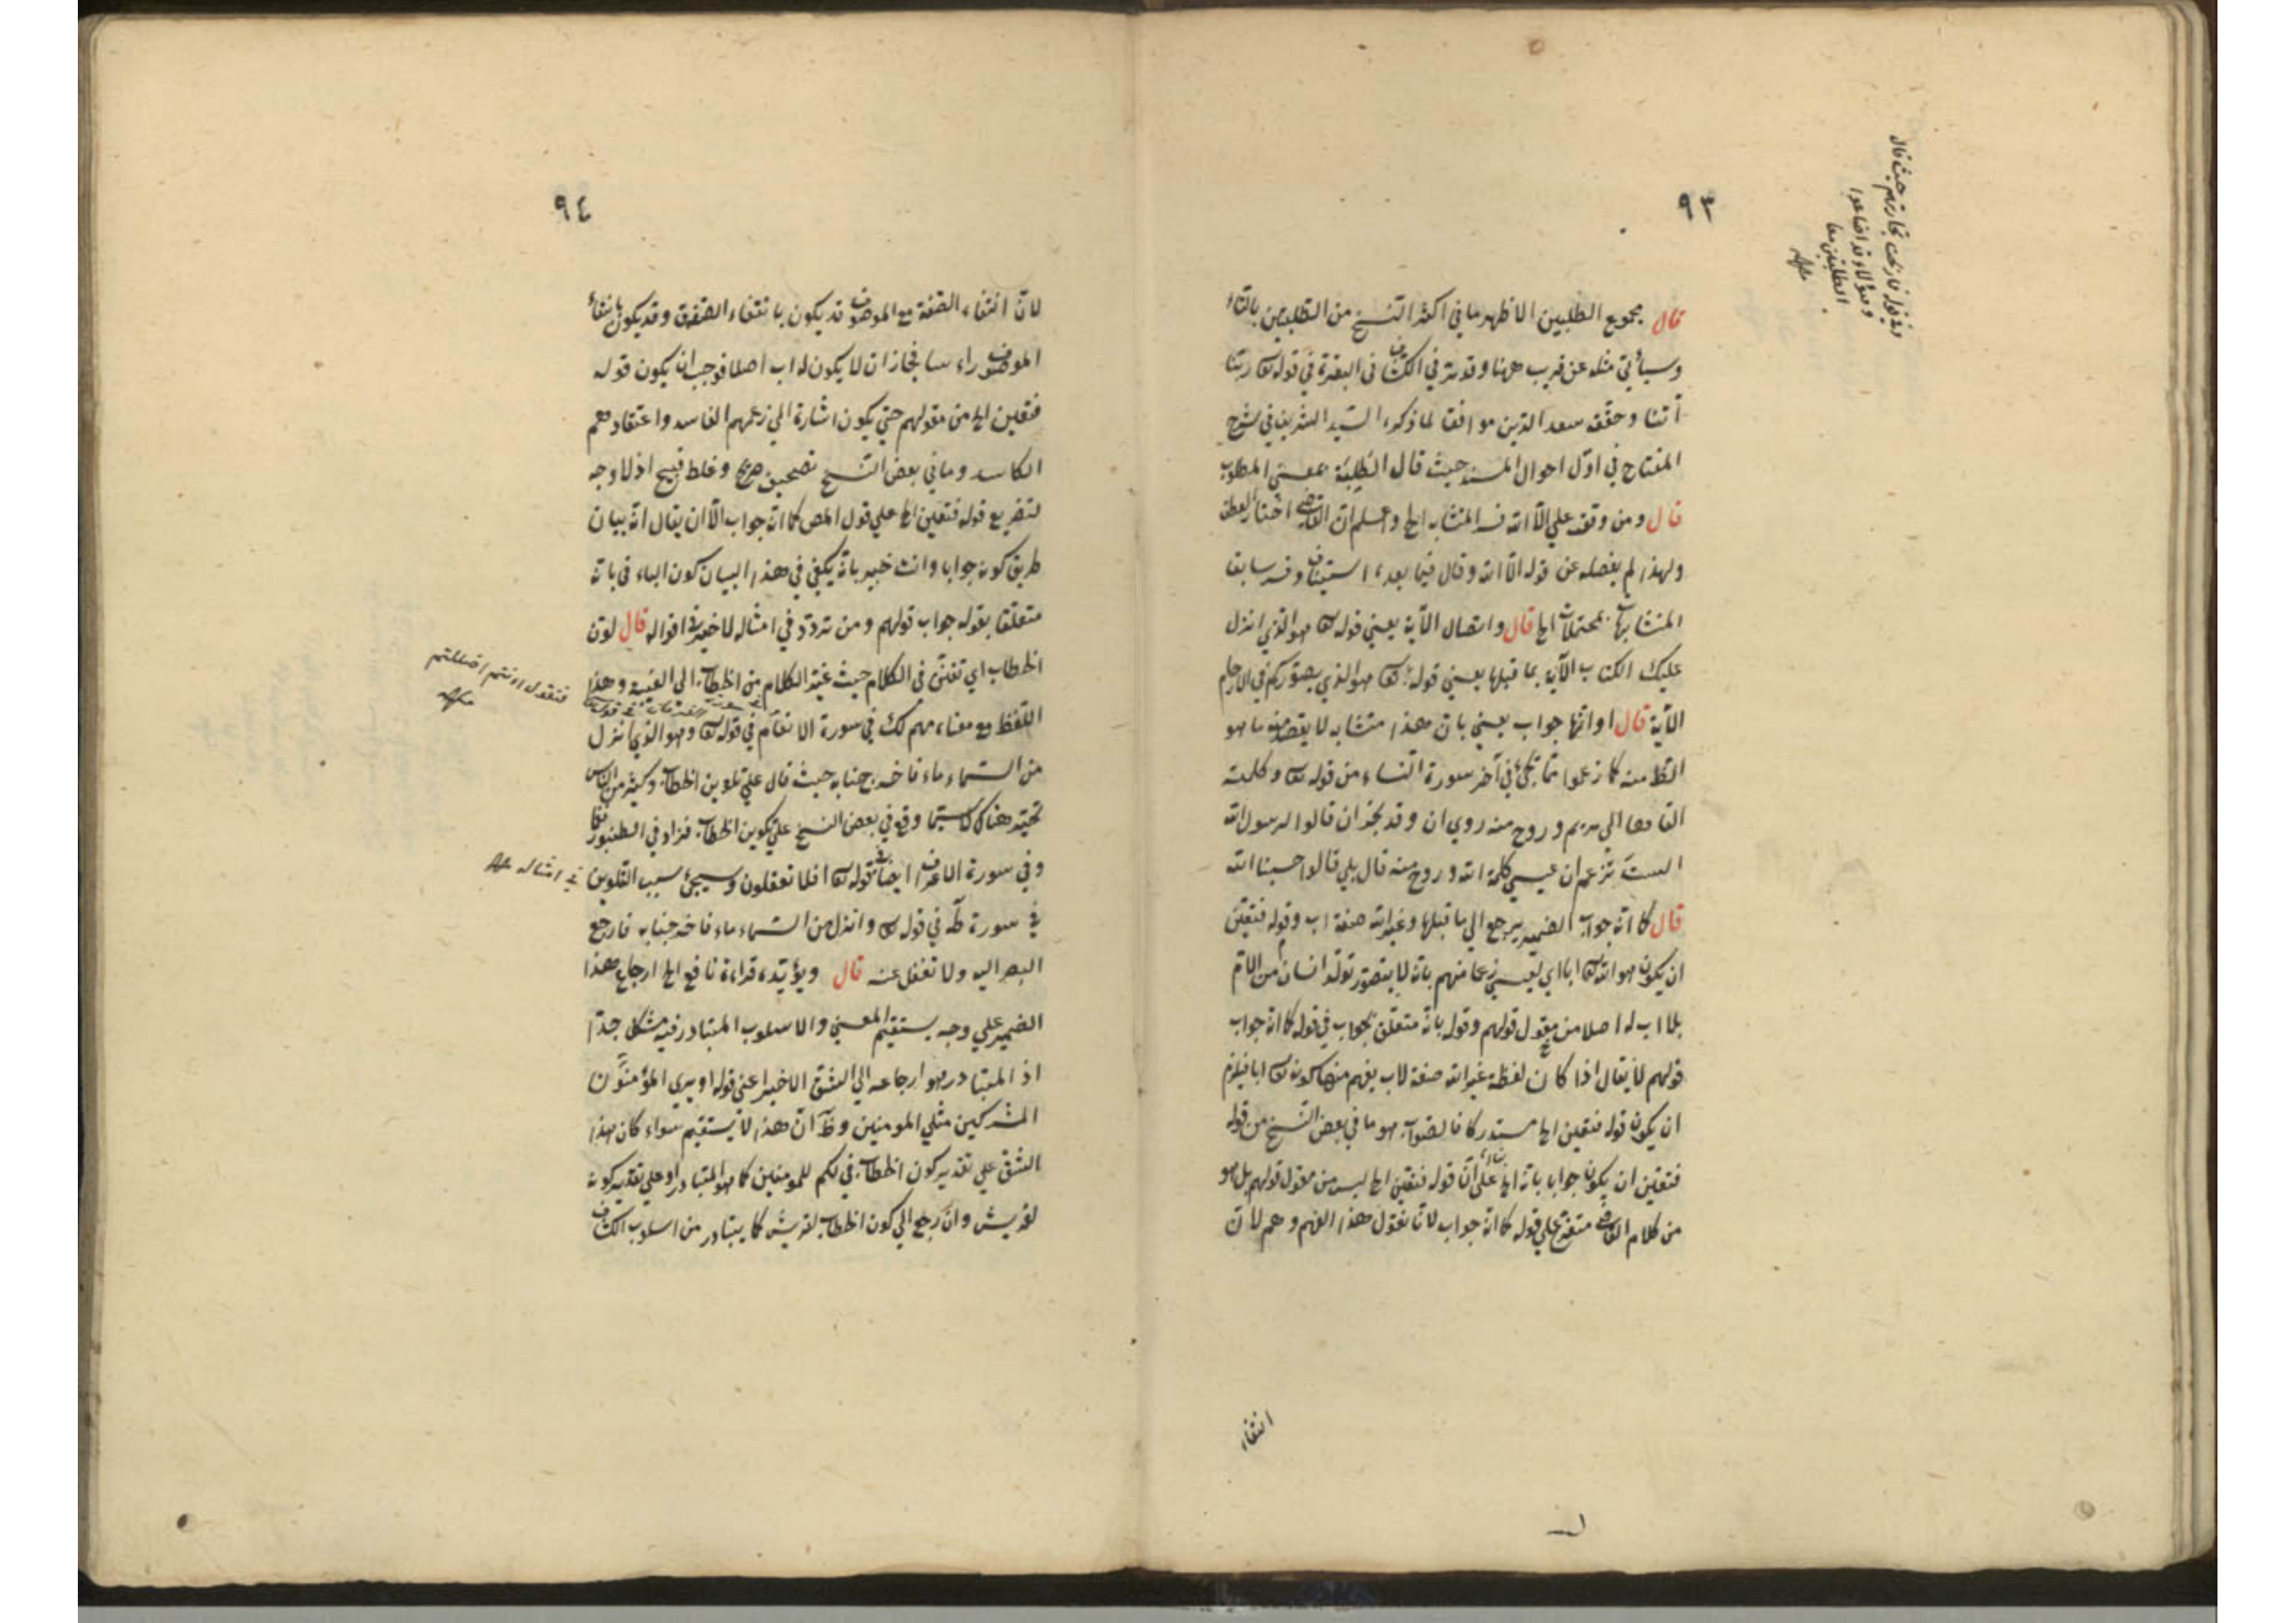 ٩٣
قال مجموع الطلبين الاظهر ما في اكثر النسخ من الطلبتين بالتاء
وسيأتي مثله عن قريب ههنا وقد مر في الكشاف في البقرة في قوله تع ربنا
آتنا وحققه سعد الدين موافقا لما ذكره السيد الشريف في شرح
المفتاح في اول احوال المسند حيث قال الطلبة بمعني المطلوب
قال ومن وقف علي الا الله فسر المتشابه الخ واعلم ان القاضي اختار العطف
ولهذا لم يفصله عن قوله الا الله وقال فيما بعده استيناف وفسر سابقا
المتشابهات بمحتملات الخ قال واتصال الآية يعني قوله تع هو الذي انزل
عليك الكتاب الآية بما قبلها يعني قوله تع هو الذي يصوركم في الارحام
الآية قال او انها جواب يعني بان هذا متشابه لا يقصد منه ما هو
الظ منه كما زعموا مما يحكي في آخر سورة النساء من قوله تع وكلمته
القاها الي مريم وروح منه روي ان وفد نجران قالوا لرسول الله
الست تزعم ان عيسي كلمة الله وروح منه قال بلي قالوا حسبنا الله
قال كما انه جواب الضمير يرجع الي ما قبلها وغير الله صفة اب وقوله فتعين
ان يكون هو الله تع ابا اي لعيسي زعما منهم بانه لا يتصور تولد انسان من الام
بلا اب له اصلا من مقول قولهم وقوله بانه متعلق بجواب في قوله كما انه جواب
قولهم لا يقال اذا كان لفظة غير الله صفة لاب يفهم منها كونه تع ابا فيلزم
ان يكون قوله فتعين الخ مستدركا فالصواب هو ما في بعض النسخ من قوله
فتعين ان يكون جوابا بانه الخ بناء علي ان قوله فتعين الخ ليس من مقول قولهم بل هو
من كلام القاضي متفرع علي قوله كما انه جواب لانا نقول هذا الفهم وهم لان
انتفاء
٩٤
لان انتفاء الصفة مع الموصوف قد يكون بانتفاء الصفة وقد يكون بانتفاء
الموصوف راسا فجاز ان لا يكون له اب اصلا فوجب ان يكون قوله
فتعين الخ من مقولهم حتي يكون اشارة الي زعمهم الفاسد واعتقادهم
الكاسد وما في بعض النسخ تصحيف صريح وغلط قبيح اذ لا وجه
لتفريع قوله فتعين الخ علي قول المص كما انه جواب الا ان يقال انه بيان
طريق كونه جوابا وانت خبير بانه يكفي في هذا البيان كون الباء في بانه
متعلقا بقوله جواب قولهم ومن تردد في امثاله لا خير في اقواله قال لون
الخطاب اي تفنن في الكلام حيث غير الكلام من الخطاب الي الغيبة وهذا
اللفظ مع معناه مهم لك في سورة الانعام في قوله تع وهو الذي انزل
من السماء ماء فاخرجنا به حيث قال علي تلوين الخطاب وكثير من الناس
تحير هناك لا سيما وقع في بعض النسخ علي تكوين الخطاب فزاد في الطنبور نغمة
وفي سورة الاعراف ايضا في قوله تع افلا تعقلون وسيجئ سبب التلوين
في سورة طه في قوله تع وانزل من السماء ماء فاخرجنا به فارجع
البصر اليه ولا تغفل عنه قال ويؤيده قراءة نافع الخ ارجاع هذا
الضمير علي وجه يستقيم المعني والاسلوب المتبادر فيه مشكل جدا
اذ المتبادر هو ارجاعه الي الشق الاخير اعني قوله او يري المؤمنون
المشركين مثلي المومنين وظ ان هذا لا يستقيم سواء كان هذا
الشق علي تقدير كون الخطاب في لكم للمومنين كما هو المتبادر او علي تقدير كونه
لقريش وان رجح الي كون الخطاب لقريش كما يتبادر من اسلوب الكشاف
في امثاله